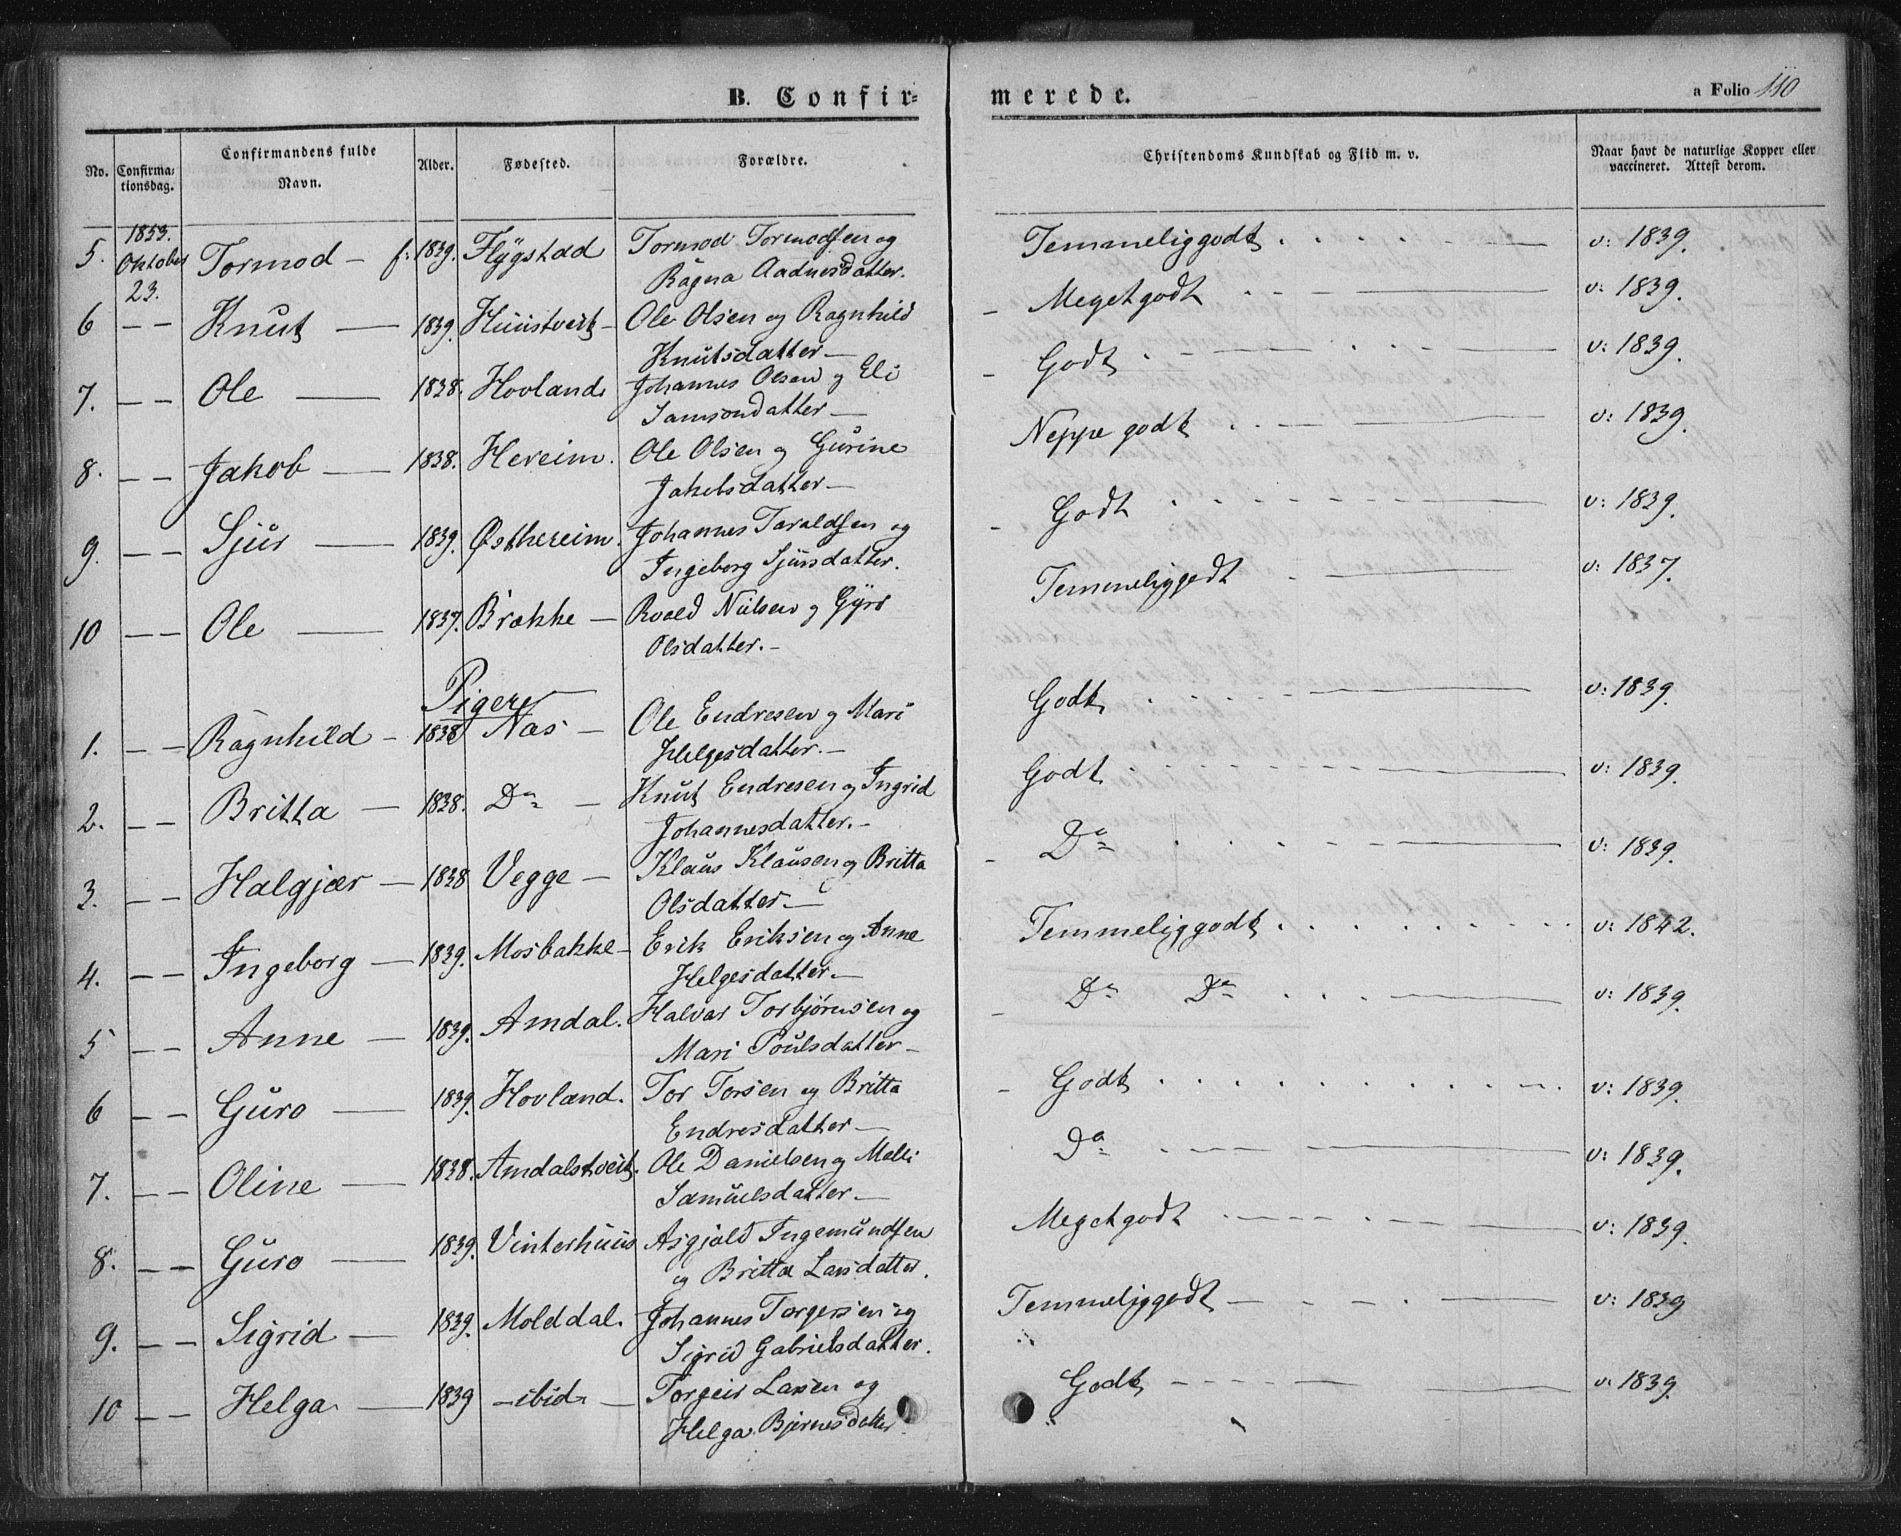 B. Confir=
merede.
a Folio 110
No.
Confirma=
tionsdag.
Confirmandens fulde
Navn.
Alder.
Fødested.
Forældre.
Christendoms Kundskab og Flid m. v.
Naar havt de naturlige Kopper eller
vaccineret. Attest derom.
1853.
5. Oktober Tormod — f: 1839. Flÿgstad Tormod Tormodsen og Temmeliggodt v: 1839.
23. Ragna Aadnesdatter.
6 — — Knut — 1839. Huustveit — Ole Olsen og Ragnhild Megetgodt v: 1839.
Knutsdatter —
7. — — Ole — 1838. Hovland Johannes Olsen og Eli Godt v: 1839.
Samsondatter —
8. — — Jakob — 1838. Hereim. Ole Olsen og Gurine Neppe godt v: 1839.
Jakobsdatter —
9. — — Sjur — 1839. Østhereim. Johannes Taraldsen og Godt v: 1839.
Ingeborg Sjursdatter.
10 — — Ole — 1837. Brække — Roald Nilsen og Gÿro Temmeliggodt v: 1837.
Olsdatter. —
Piger
1. — — Ragnhild — 1838 Næs — Ole Endresen og Mari Godt v: 1839.
Helgesdatter. —
2. — — Britta — 1838. Do — Knut Endresen og Ingrid Godt v: 1839.
Johannesdatter. —
3. — — Halgjær — 1838 Vegge — Klaus Klausen og Britta Do v: 1839.
Olsdatter. —
4. — — Ingeborg — 1839. Mosbakke — Erik Eriksen og Anne Temmeliggodt v: 1842.
Helgesdatter. —
5 — — Anne — 1839. Amdal. Halvar Torbjørnsen og Do Do v: 1839.
Mari Poulsdatter —
6 — — Guro — 1839. Hovland. Tor Torsen og Britta Godt v: 1839.
Endresdatter —
7. — — Oline — 1838. Amdalstveit. Ole Danielsen og Malli Do v: 1839.
Samuelsdatter —
8. — — Guro — 1839. Vinterhuus Asgjald Ingemundsen Megetgodt v: 1839.
og Britta Larsdatter.
9. — — Sigrid — 1839. Molddal. Johannes Torgersen og Temmeliggodt v: 1839
Sigrid Gabrielsdatter.
10 — — Helga — 1839 — ibid — Torgeir Larsen og Godt v: 1839.
Helga Bjørnesdatter